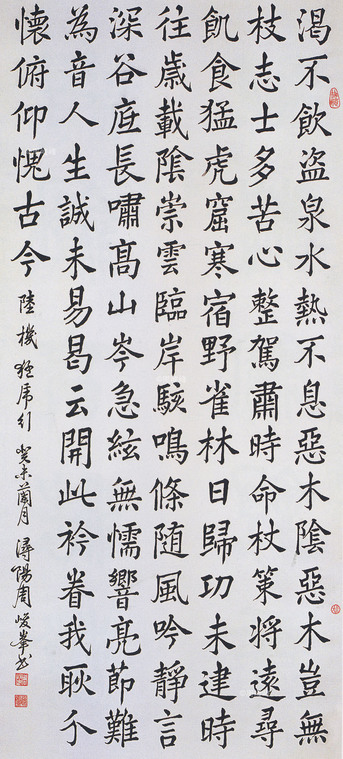 渴不飲盗泉水熱不息惡木陰惡木豈無
枝志士多苦心整駕肅時命杖策將遠尋
飢食猛虎窟寒宿野雀林日歸功未建時
往歲載陰崇雲臨岸駭鳴條随風吟靜言
深谷底長嘯髙山岑急絃無懦響亮節難
為音人生誠未易曷云開此衿眷我耿介
懷俯仰愧古今 陸機 猛虎行 癸未蘭月 潯陽周峻峯書